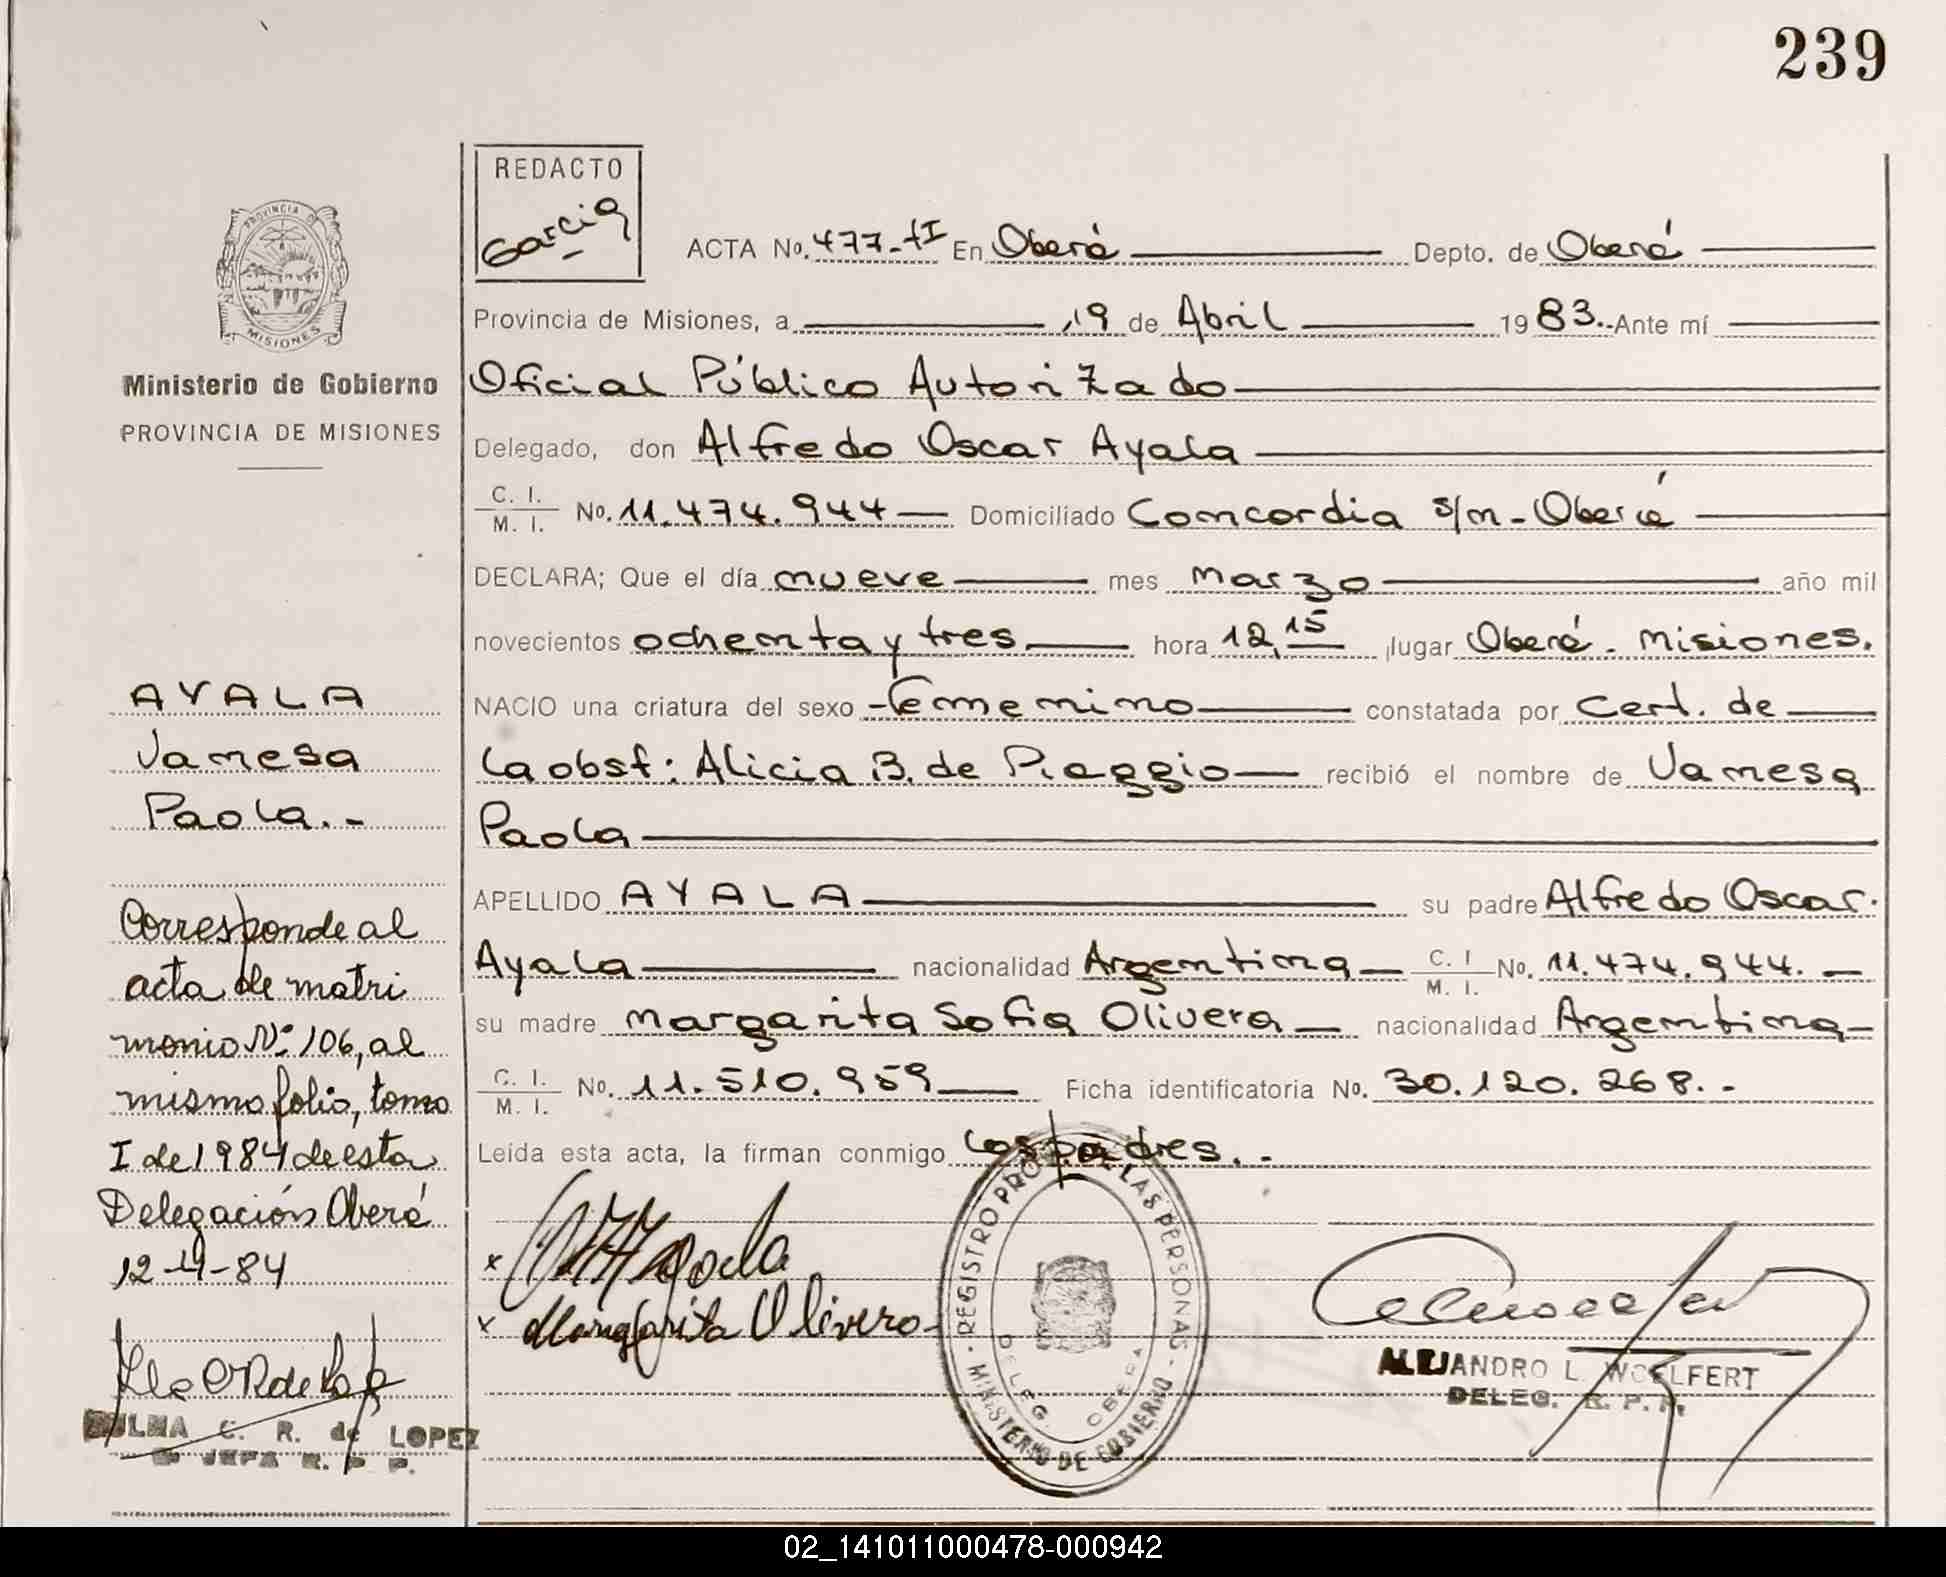 239
REDACTO
Garcia
PROVINCIA DE
MISIONES
Ministerio de Gobierno
PROVINCIA DE MISIONES
ACTA No. 477-tI En Oberá Depto. de Oberá
Provincia de Misiones, a 19 de Abril 1983.-Ante mí
Oficial Público Autorizado
Delegado, don Alfredo Oscar Ayala
C. I.
M. I. No. 11.474.944 Domiciliado Concordia s/n - Oberá
DECLARA; Que el día nueve mes marzo año mil
novecientos ochenta y tres hora 12,15 lugar Oberá - Misiones.
NACIO una criatura del sexo Femenino constatada por Cert. de
la obst: Alicia B. de Piaggio recibió el nombre de Vanesa
Paola
APELLIDO AYALA su padre Alfredo Oscar
Ayala nacionalidad Argentina C. I.
M. I. No. 11.474.944.-
su madre Margarita Sofia Olivera nacionalidad Argentina
C. I.
M. I. No. 11.510.959 Ficha identificatoria No. 30.120.268.-
Leída esta acta, la firman conmigo los padres.-
AYALA
Vanesa
Paola.-
Corresponde al
acta de matri
monio Nº 106, al
mismo folio, tomo
I de 1984 de esta
Delegación Oberá
12-4-84
C. R. de LOPEZ
JEFA R. P. P.
x
x Margarita Olivera
REGISTRO PROV. DE LAS PERSONAS
MINISTERIO DE GOBIERNO
DELEG. OBERA
ALEJANDRO L. WOELFERT
DELEG. R. P. P.
02_141011000478-000942